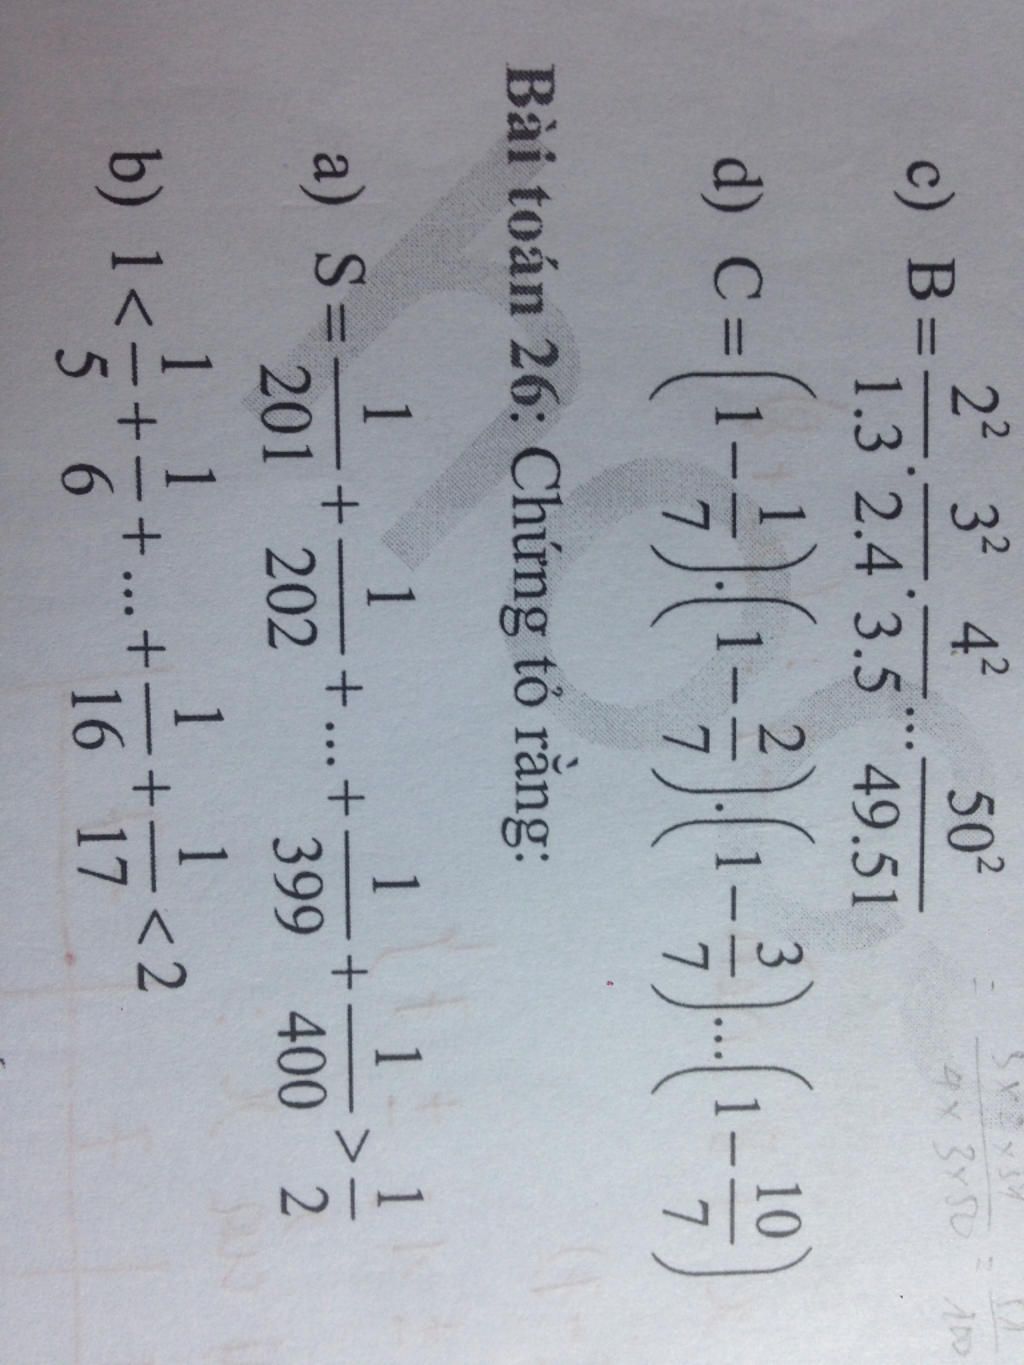 c) B = 2²/1.3 . 3²/2.4 . 4²/3.5 ... 50²/49.51
d) C = (1 − 1/7).(1 − 2/7).(1 − 3/7)...(1 − 10/7)
Bài toán 26: Chứng tỏ rằng:
a) S = 1/201 + 1/202 + ... + 1/399 + 1/400 > 1/2
b) 1 < 1/5 + 1/6 + ... + 1/16 + 1/17 < 2